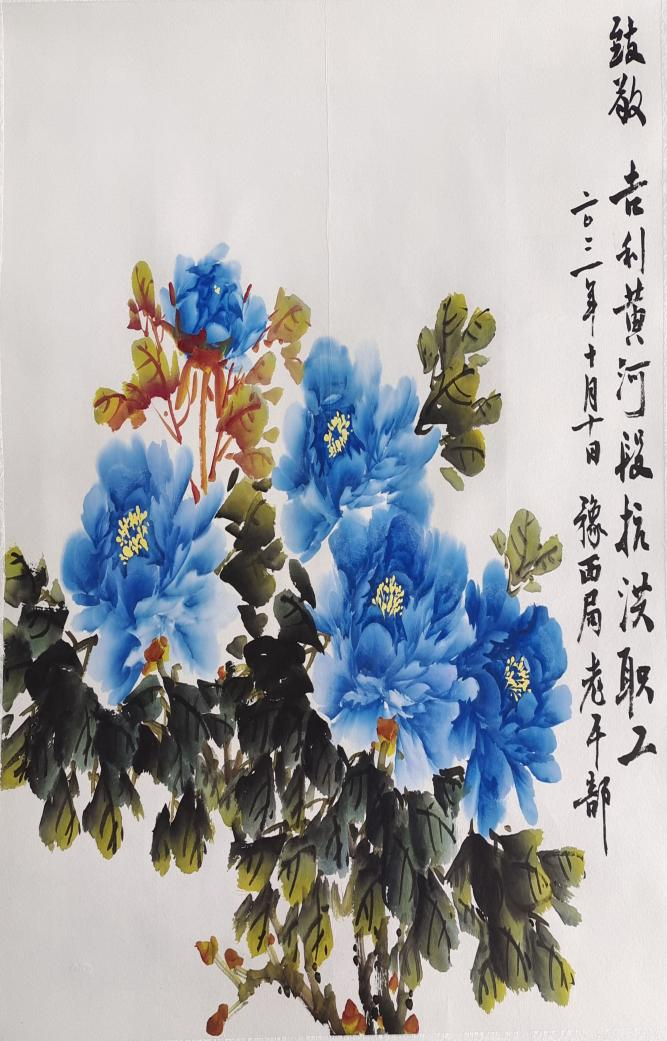 致敬 吉利黄河段抗洪职工
二〇二一年十月十日 豫西局老干部